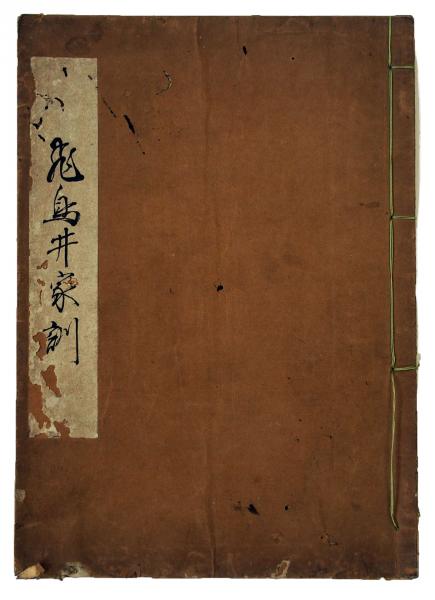 飛鳥井家訓